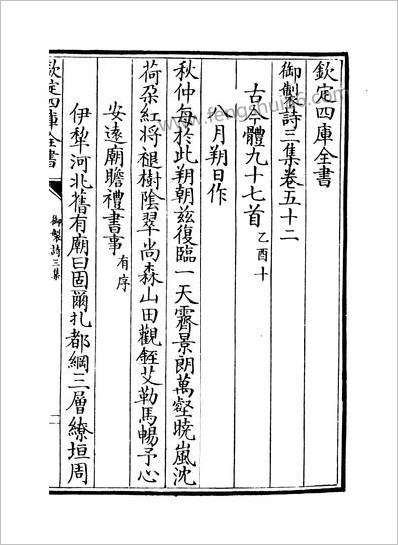 欽定四庫全書
御製詩三集卷五十二
古今體九十七首乙酉十
八月朔日作
秋仲每於此朔朝茲復臨一天霽景朗萬壑曉嵐沈
荷朶紅將褪樹陰翠尚森山田觀銍艾勒馬暢予心
安遠廟瞻禮書事有序
伊犂河北舊有廟曰固爾扎都綱三層繚垣周
欽定四庫全書
御製詩三集
一
www.fengshui86.com